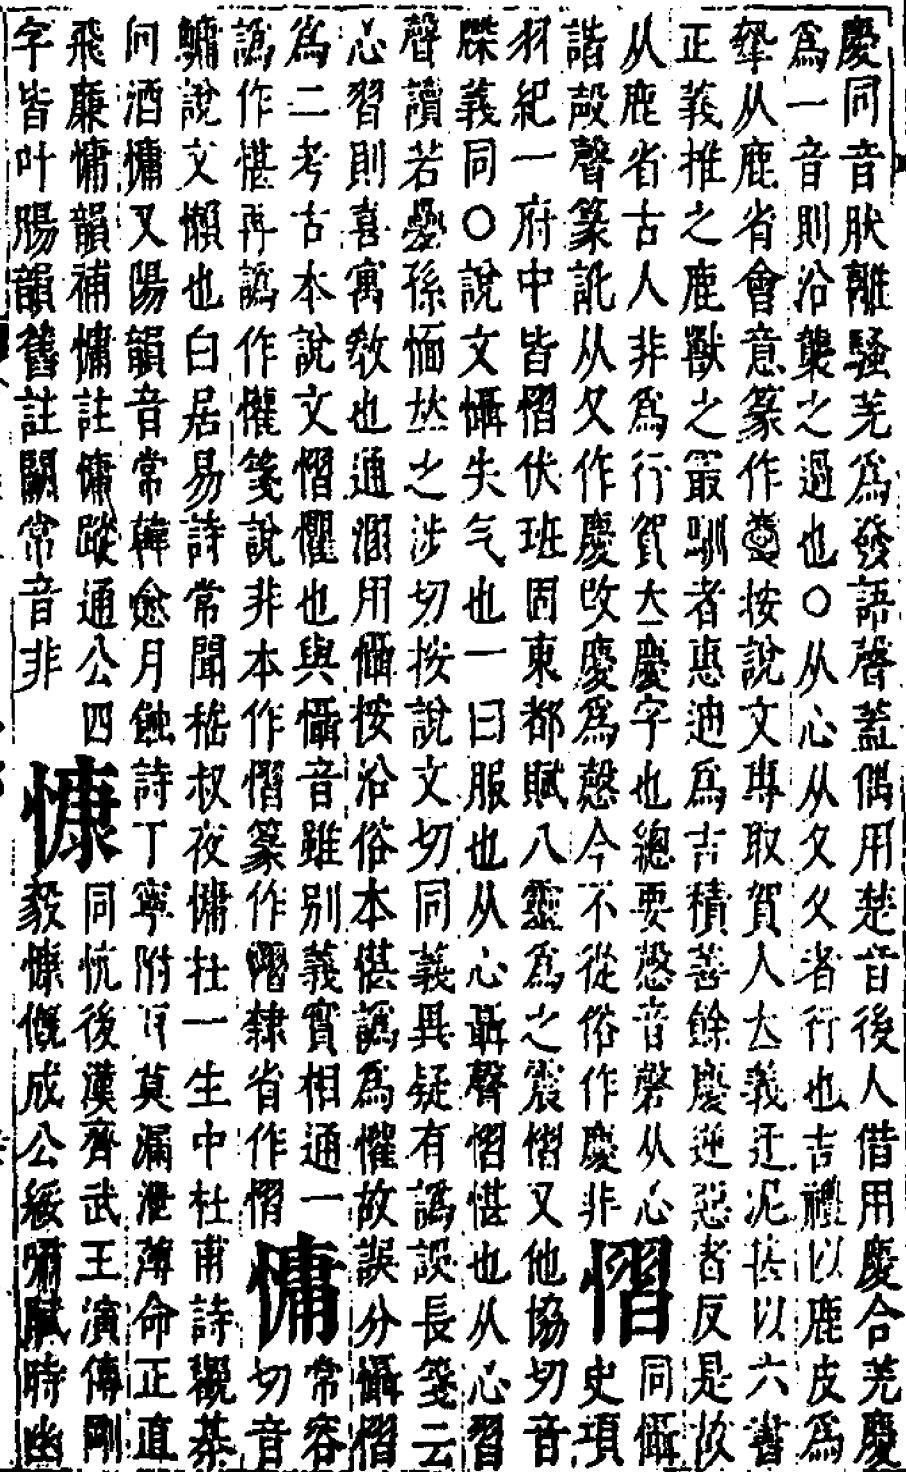 慶同音肰離騷羌爲發語聲蓋偶用楚音後人借用慶合羌慶
爲一音則沿襲之過也○从心从夂夂者行也吉禮以鹿皮爲
从鹿省會意篆作按說文專取賀人去義迂泥甚以六書
正義推之鹿獸之最馴者惠迪爲吉積善餘慶逆惡者反是故
从鹿省古人非爲行賀大慶字也總要慤音磬从心
諧殸聲篆訛从夂作慶改慶爲慤今不從俗作慶非
慴
同懾史項
羽紀一府中皆慴伏班固東都賦八靈爲之震慴又他協切音
牒義同○說文懾失气也一曰服也从心聶聲慴㥍也从心習
聲讀若曡孫愐𠀤之涉切按說文切同義異疑有譌誤長箋云
心習則喜寓敎也通溷用懾按沿俗本㥍譌爲懼故誤分懾慴
爲二考古本說文慴懼也與懾音雖別義實相通一
譌作㥍再譌作懼箋說非本作慴篆作慴隸省作慴
慵
常容切音
鱅說文懶也白居易詩常聞嵇叔夜慵在一生中杜甫詩觀棊
向酒慵又陽韻音常韓愈月蝕詩丁寧附耳莫漏泄薄命正直
飛廉慵韻補慵註慵蹤通公四
字皆叶陽韻舊註闢常音非
慷
同忼後漢齊武王演傳剛
毅慷慨成公綏嘯賦時幽